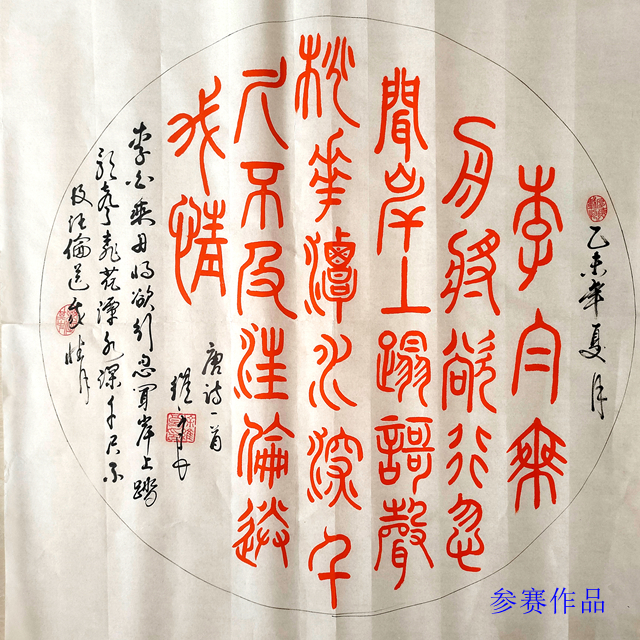 乙未年夏月
李白乘
舟將欲行忽
聞岸上蹋謌聲
桃華潭水深千
尺不及汪倫送
我情
唐诗一首
李白乘舟将欲行忽闻岸上踏
歌声桃花潭水深千尺不
及汪倫送我情
参赛作品